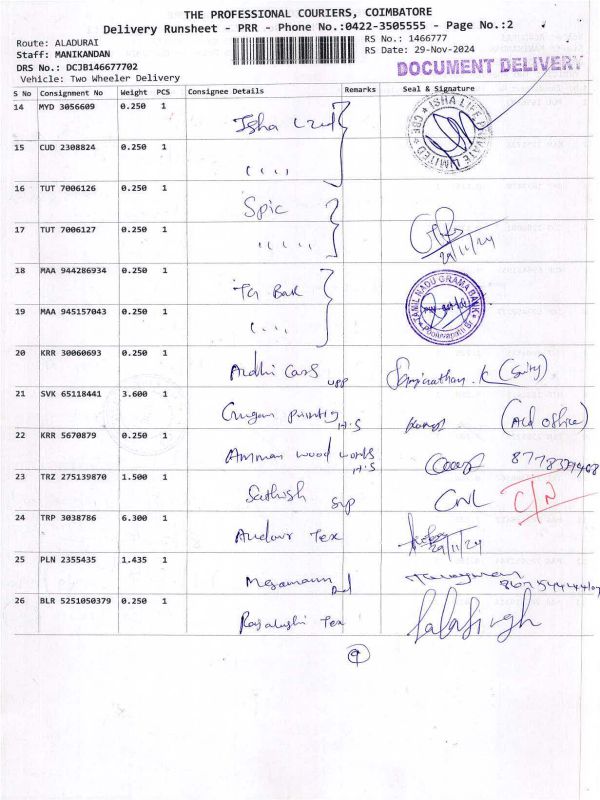 THE PROFESSIONAL COURIERS, COIMBATORE
Delivery Runsheet - PRR - Phone No.:0422-3505555 - Page No.:2
Route: ALADURAI
Staff: MANIKANDAN
DRS No.: DCJB146677702
Vehicle: Two Wheeler Delivery
RS No.: 1466777
RS Date: 29-Nov-2024
DOCUMENT DELIVERY
S No Consignment No Weight PCS Consignee Details Remarks Seal & Signature
14 MYD 3056609 0.250 1 Isha
ISHA LIFE PRIVATE LIMITED CBE
15 CUD 2308824 0.250 1 ,, ,,
16 TUT 7006126 0.250 1 Spic
17 TUT 7006127 0.250 1 ,, ,,
29/11/24
18 MAA 944286934 0.250 1
TAMIL NADU GRAMA BANK
19 MAA 945157043 0.250 1 ,, ,,
20 KRR 30060693 0.250 1
21 SVK 65118441 3.600 1 Printing H.S
22 KRR 5670879 0.250 1 Amman wood works H.S
23 TRZ 275139870 1.500 1 Sathish CNL C/N
24 TRP 3038786 6.300 1 Tex 29/11/24
25 PLN 2355435 1.435 1
26 BLR 5251050379 0.250 1 Tex
9